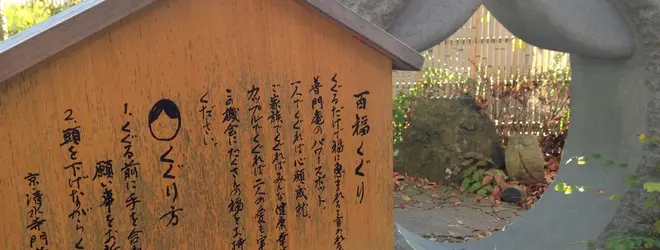 百福くぐり
くぐるだけで福に恵まれる
普門庵のパワースポット
一人でくぐれば心願成就
ご家族でくぐればみんな健康
カップルでくぐれば二人の愛も
この機会にたくさんの福をお持
ください。
くぐり方
1、くぐる前に手を合
願い事をお
2、頭を下げながらく
京清水寺門